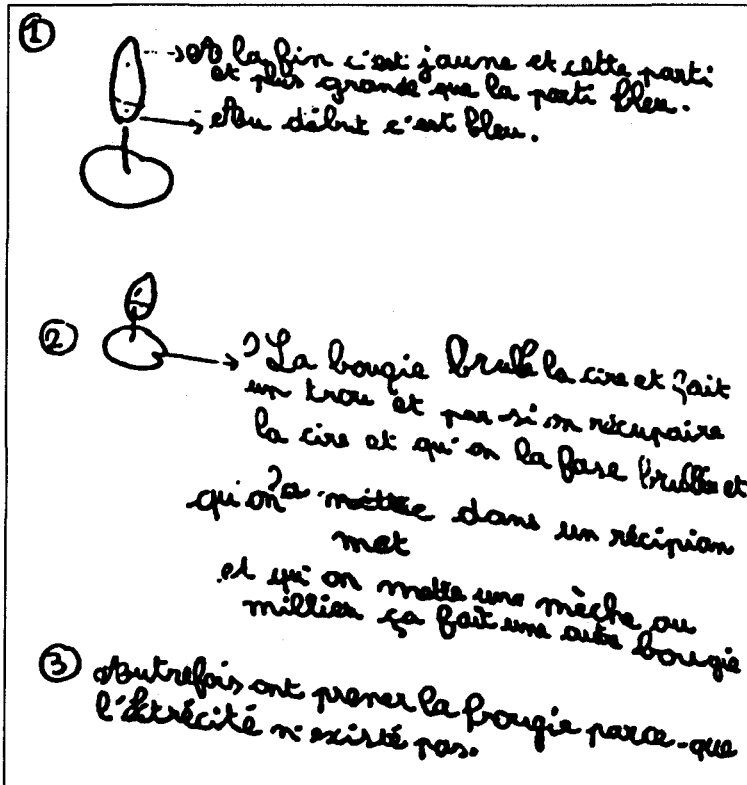 1
A la fin c'est jaune et cette parti
et plus grande que la parti bleu.
Au début c'est bleu.
2
La bougie brulle la cire et fait
un trou et par si on récupaire
la cire et qu'on la fase brullée et
qu'on mettre dans un récipian
met
et qu'on mette une mèche au
millieu ça fait une autre bougie
3
Autrefois ont prener la bougie parce-que
l'életrécité n'existé pas.